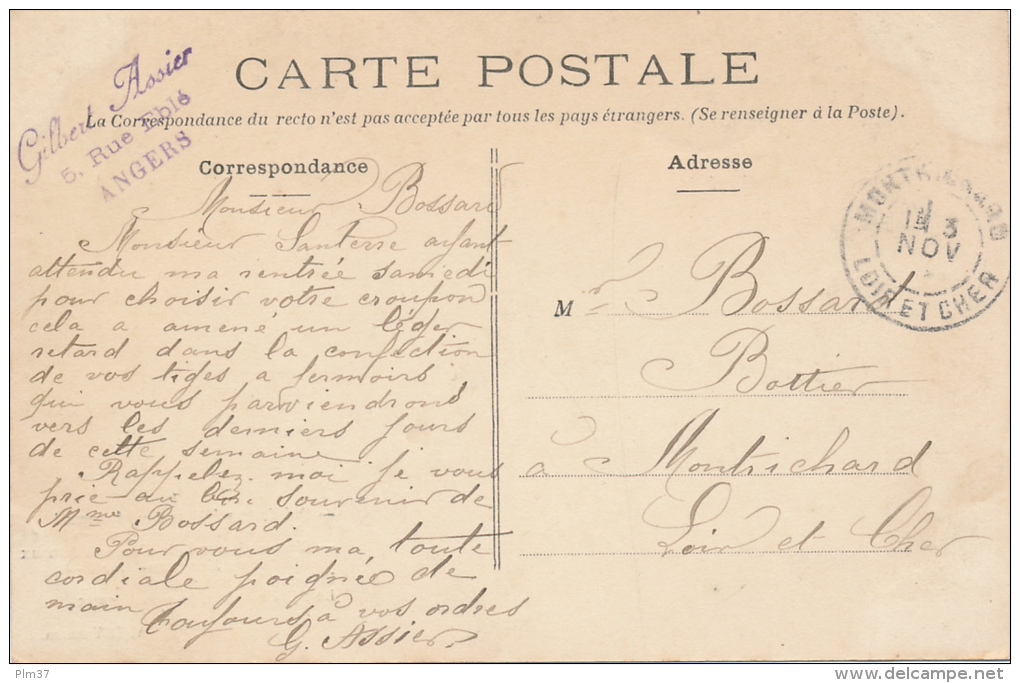 CARTE POSTALE
Gilbert Assier
5, Rue Eblé
ANGERS
La Correspondance du recto n'est pas acceptée par tous les pays étrangers. (Se renseigner à la Poste).
Correspondance
Monsieur Bossard
Monsieur Santerre ayant
attendu ma rentrée samedi
pour choisir votre croupon
cela a amené un léger
retard dans la confection
de vos tiges a fermoirs
qui vous parviendront
vers les derniers jours
de cette semaine
Rappelez moi je vous
prie au bon souvenir de
Mme Bossard.
Pour vous ma toute
cordiale poignée de
main
Toujours à vos ordres
G. Assier
Adresse
Mr Bossard
Bottier
à Montrichard
Loir et Cher
MONTRICHARD
3
NOV
LOIR ET CHER
Plm37
www.delcampe.net